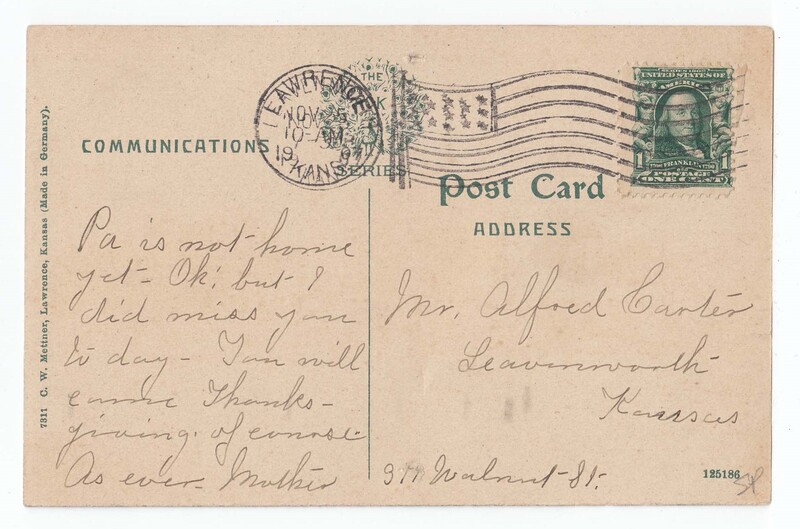 LAWRENCE
NOV 5
10-AM
1907
KANS.
THE
SERIES
SERIES 1902
UNITED STATES OF
AMERICA
1706 FRANKLIN 1790
POSTAGE
1 ONE CENT 1
COMMUNICATIONS
Post Card
ADDRESS
Pa is not home
yet - Ok! but I
did miss you
to day - You will
come Thanks-
giving. of course
As ever - Mother
Mr. Alfred Carter
Leavenworth
Kansas
Walnut St.
7311 C. W. Mettner, Lawrence, Kansas (Made in Germany).
125186